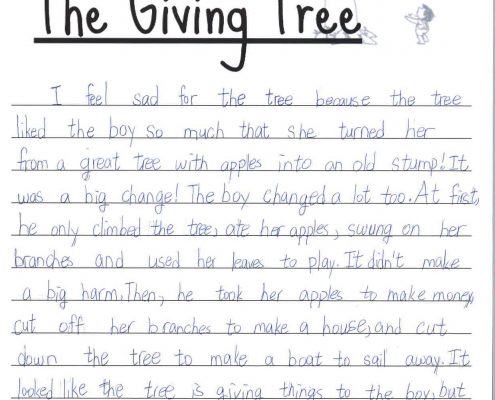 The Giving Tree
I feel sad for the tree because the tree
liked the boy so much that she turned her
from a great tree with apples into an old stump! It
was a big change! The boy changed a lot too. At first,
he only climbed the tree, ate her apples, swung on her
branches and used her leaves to play. It didn't make
a big harm. Then, he took her apples to make money,
cut off her branches to make a house, and cut
down the tree to make a boat to sail away. It
looked like the tree is giving things to the boy, but